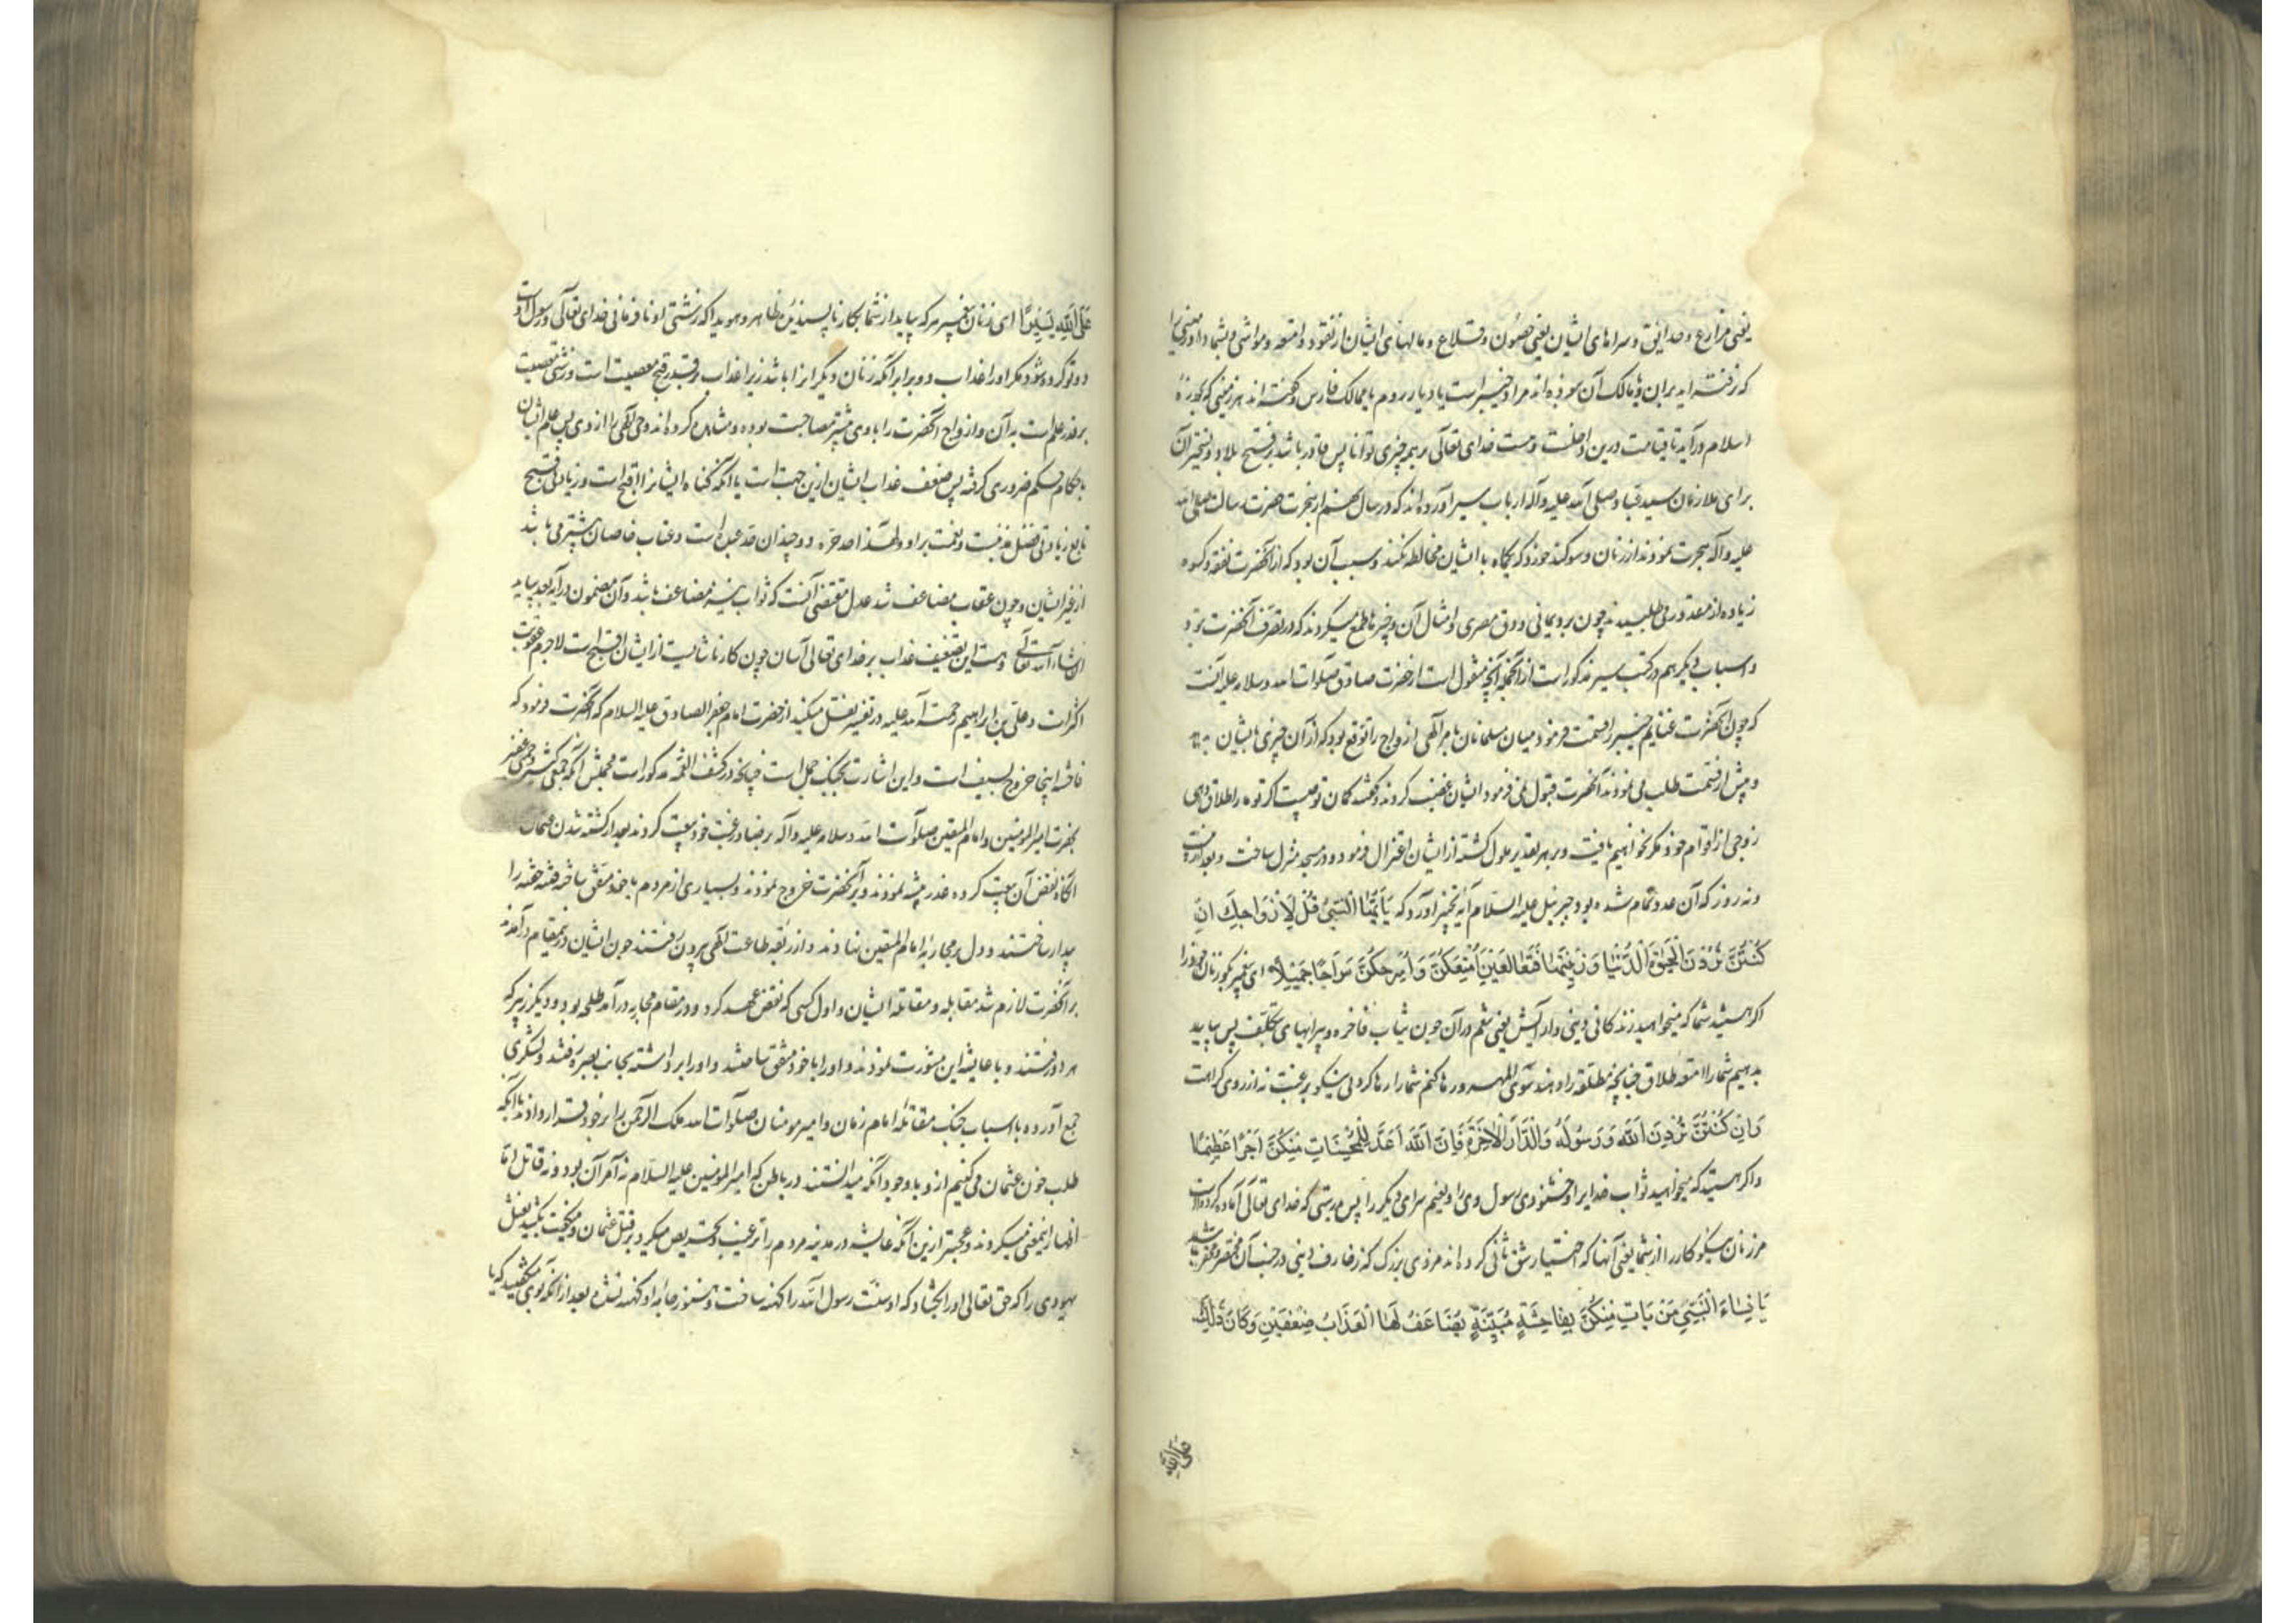 یعنی مزارع و حدایق و سراهای ایشان یعنی حصون و قلاع و مالهای ایشان از نقود و امتعه و مواشی و بشما داد زمینی را
که نرفته اید بران و مالک آن نبوده اند مراد خیبرست یا دیار روم یا ممالک فارس و گفته اند هر زمینی که بحوزهٔ
اسلام درآید تا قیامت درین داخلست و هست خدای تعالی بر همه چیزی توانا پس قادر باشد بر فتح بلاد و تسخیر آن
برای ملازمان سید عباد صلی الله علیه و آله ارباب سیر آورده اند که در سال نهم از هجرت حضرت رسالت صلی الله
علیه و آله هجرت نمودند از زنان و سوکند خورد که یکماه با ایشان مخالطه نکنند و سبب آن بود که از آنحضرت نفقه و کسوه
زیاده از مقدور می طلبیدند چون برد یمانی و دق مصری و امثال آن و چیزها طمع میکردند که در تصرف آنحضرت نبود
و اسباب دیگر هم در کتب سیر مذکور است از آنجمله آنچه منقول است از حضرت صادق صلوات الله و سلامه علیه آنست
که چون آنحضرت غنایم خیبر را قسمت فرمود میان مسلمانان بامر الهی ازواج را توقع بود که از آن چیزی بایشان
و پیش از قسمت طلب می نمودند آنحضرت قبول نمی فرمود ایشان غضب کردند و گفتند کمان تو چیست اگر تو ما را طلاق دهی
زوجی از اقوام خود مکر نخواهیم یافت و بر هر تقدیر ملول کشته از ایشان اعتزال فرمود و در مسجد منزل ساخت و بعد از بیست
و نه روز که آن عدد تمام شده بود جبرئیل علیه السلام آیه تخییر آورد که يَا أَيُّهَا النَّبِيُّ قُلْ لِأَزْوَاجِكَ إِنْ
كُنْتُنَّ تُرِدْنَ الْحَيٰوةَ الدُّنْيَا وَزِينَتَهَا فَتَعَالَيْنَ أُمَتِّعْكُنَّ وَأُسَرِّحْكُنَّ سَرَاحًا جَمِيلًا ای پیغمبر بگو زنان خود را
اگر هستید شما که میخواهید زندگانی دنیی و آرایش یعنی تنعم در آن چون ثیاب فاخره و پیرایهای بتکلف پس بیایید
بدهیم شما را متعه طلاق چنانچه مطلقه را دهند سوی المهر و رها کنم شما را رها کردنی نیکو برغبت نه از روی کراهت
وَإِنْ كُنْتُنَّ تُرِدْنَ اللّٰهَ وَرَسُولَهُ وَالدَّارَ الْآخِرَةَ فَإِنَّ اللّٰهَ أَعَدَّ لِلْمُحْسِنَاتِ مِنْكُنَّ أَجْرًا عَظِيمًا
و اگر هستید که میخواهید ثواب خدا یرا و خشنودی رسول وی را و نعیم سرای دیگر را پس بدرستی که خدای تعالی آماده کرده است
مر زنان نیکوکار را از شما یعنی آنها که اختیار شق ثانی کرده اند مزدی بزرگ که زخارف دنیی در جنب آن محتقر و مختصر باشد
يَا نِسَاءَ النَّبِيِّ مَنْ يَأْتِ مِنْكُنَّ بِفَاحِشَةٍ مُبَيِّنَةٍ يُضَاعَفْ لَهَا الْعَذَابُ ضِعْفَيْنِ وَكَانَ ذٰلِكَ
علی الله
عَلَى اللّٰهِ يَسِيرًا ای زنان پیغمبر هر که بیاید از شما بکار ناپسندیدهٔ ظاهر و هویدا که زشتی او نافرمانی خدای تعالی و رسول اوست
دو تو کرده شود مر او را عذاب دو برابر آنکه زنان دیگر انرا باشد زیرا عذاب بر قدر قبح معصیت است و زشتی معصیت
بر قدر علم است به آن و ازواج آنحضرت را با وی بیشتر مصاحبت بوده و مشاهده کرده اند وحی الهی را از وی پس علم ایشان
باحکام حکم ضروری گرفته پس ضعف عذاب ایشان ازین جهت است یا آنکه گناه ایشانرا اقبح است و زیادتی قبح
تابع زیادتی فضل مذنبست و نعمت بر او و لهذا حد حره دو چندان حد عبد است و عتاب خاصان بیشتر می باشد
از غیر ایشان و چون عقاب مضاعف شد عدل مقتضی آنست که ثواب نیز مضاعف باشد و آن مضمون در آیه بعد بیاید
ان شاء الله تعالی و هست این تضعیف عذاب بر خدای تعالی آسان چون کار ناشایست از ایشان اقبح است لاجرم عقوبت
اکثرست و علی بن ابراهیم رحمت الله علیه در تفسیر نقل میکند از حضرت امام جعفر الصادق علیه السلام که آنحضرت فرمود که
فاحشه اینجا خروج بسیف است و این اشارت بجنگ جمل است چنانچه در کشف الغمه مذکور است مجملش آنکه جمعی کثیر و جمعی غفیر
بحضرت امیر المومنین و امام المتقین صلوات الله و سلامه علیه و آله برضا و رغبت خود بیعت کردند بعد از کشته شدن عثمان
آنگاه نقض آن بیعت کرده غدر پیشه نمودند و بر آنحضرت خروج نمودند و بسیاری از مردم با خود متفق ساخته فتنه خفته را
بیدار ساختند و دل بر محاربهٔ امام المتقین نهادند و از ربقه طاعت الهی بیرون رفتند چون ایشان درینمقام درآمدند
بر آنحضرت لازم شد مقابله و مقاتله ایشان و اول کسی که نقض عهد کرد و در مقام محاربه درآمد طلحه بود و دیگر زبیر که
هر دو رفتند و با عایشه این مشورت نمودند و او را با خود متفق ساختند و او را برداشته بجانب بصره رفتند و لشکری
جمع آورده با اسباب جنگ مقاتلهٔ امام زمان و امیر مومنان صلوات الله ملک الرحمن را بر خود قرار دادند با آنکه
طلب خون عثمان می کنیم از و با وجود آنکه میدانستند در باطن که امیر المومنین علیه السلام نه آمر آن بود و نه قاتل امّا
اظهار اینمعنی میکردند و عجبتر ازین آنکه عایشه در مدینه مردم را ترغیب و تحریص میکرد بر قتل عثمان و میگفت بکشید نعثل
یهودی را که حق تعالی او را بکشاد که او سنّت رسول الله را کهنه ساخت و هنوز جامهٔ او کهنه نشده بعد از آنکه او می کشتید که یا